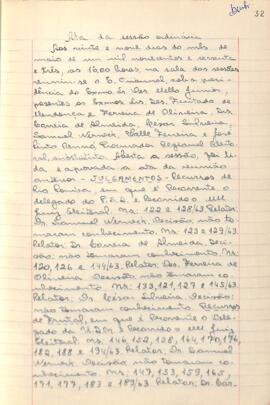 32
Ata da sessão ordinária
Aos vinte e nove dias do mês de
maio de um mil novecentos e sessenta
e três, às 16,00 horas, na sala das sessões
reuniu-se o E. Tribunal, sob a presi-
dência do Exmo Sr Des. Mello Junior,
presentes os Exmos Srs Des. Furtado de
Mendonça e Ferreira de Oliveira, Drs.
Correia de Almeida, Cesar Silveira,
Samuel Werneck, Valle Ferreira e José
Procurador Regional Eleito-
ral, substituto. Aberta a sessão, foi li-
da e aprovada a ata da reunião
anterior - JULGAMENTOS - Recursos de
Rio em que é Recorrente o
delegado do P.S.D. e Recorrido o MM
Juiz Eleitoral. Ns. 122 e 128/63. Relator
Dr. Samuel Werneck. Decisão: não to-
maram conhecimento. Ns. 123 e 129/63.
Relator: Dr. Correia de Almeida. Deci-
são: não tomaram conhecimento. Ns.
120, 126 e 144/63. Relator: Des. Ferreira de
Oliveira. Decisão: não tomaram co-
nhecimento. Ns. 133, 121, 127 e 145/63
Relator: Dr. Cesar Silveira. Decisão:
não tomaram conhecimento. Recursos
de Frutal, em que é Recorrente o Dele-
gado da U.D.N. e Recorrido o MM Juiz
Eleitoral. Ns. 146, 152, 128, 164, 170, 176,
182, 188 e 194/63. Relator: Dr. Samuel
Werneck. Decisão: não tomaram co-
nhecimento. Ns. 147, 153, 159, 165,
171, 177, 183 e 189/63. Relator: Dr. Cor-